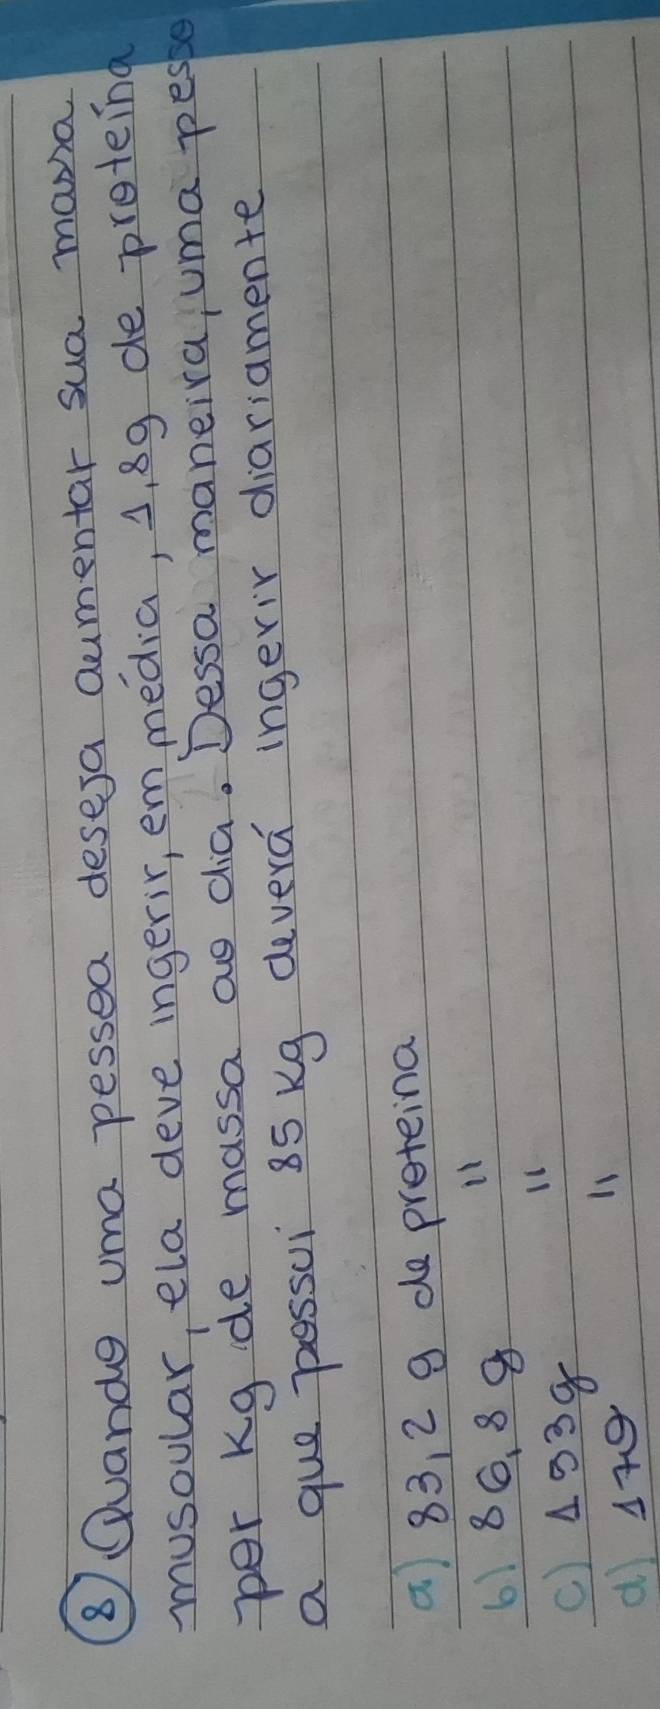 8) Quando uma pessoa deseja aumentar sua massa
musoular, ela deve ingerir, em média, 1,8g de proteína
por Kg de massa ao dia. Dessa maneira, uma pesso
a que possui 85 Kg deverá ingerir diariamente
a) 83,2 g de proteina
b) 86,8 g "
c) 153g "
d) 17g "